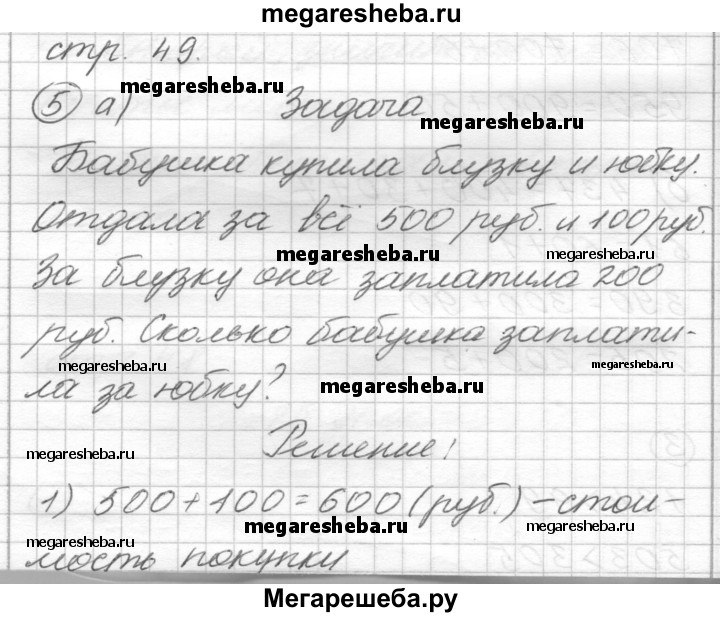 megaresheba.ru
стр. 49.
megaresheba.ru
5 а) Задача
megaresheba.ru
Бабушка купила блузку и юбку.
megaresheba.ru
Отдала за всё 500 руб. и 100 руб.
megaresheba.ru
megaresheba.ru
За блузку она заплатила 200
руб. Сколько бабушка заплати-
megaresheba.ru
megaresheba.ru
ла за юбку?
megaresheba.ru
Решение:
megaresheba.ru
1) 500 + 100 = 600 (руб.) – стои-
megaresheba.ru
megaresheba.ru
megaresheba.ru
мость покупки
Мегарешеба.ру